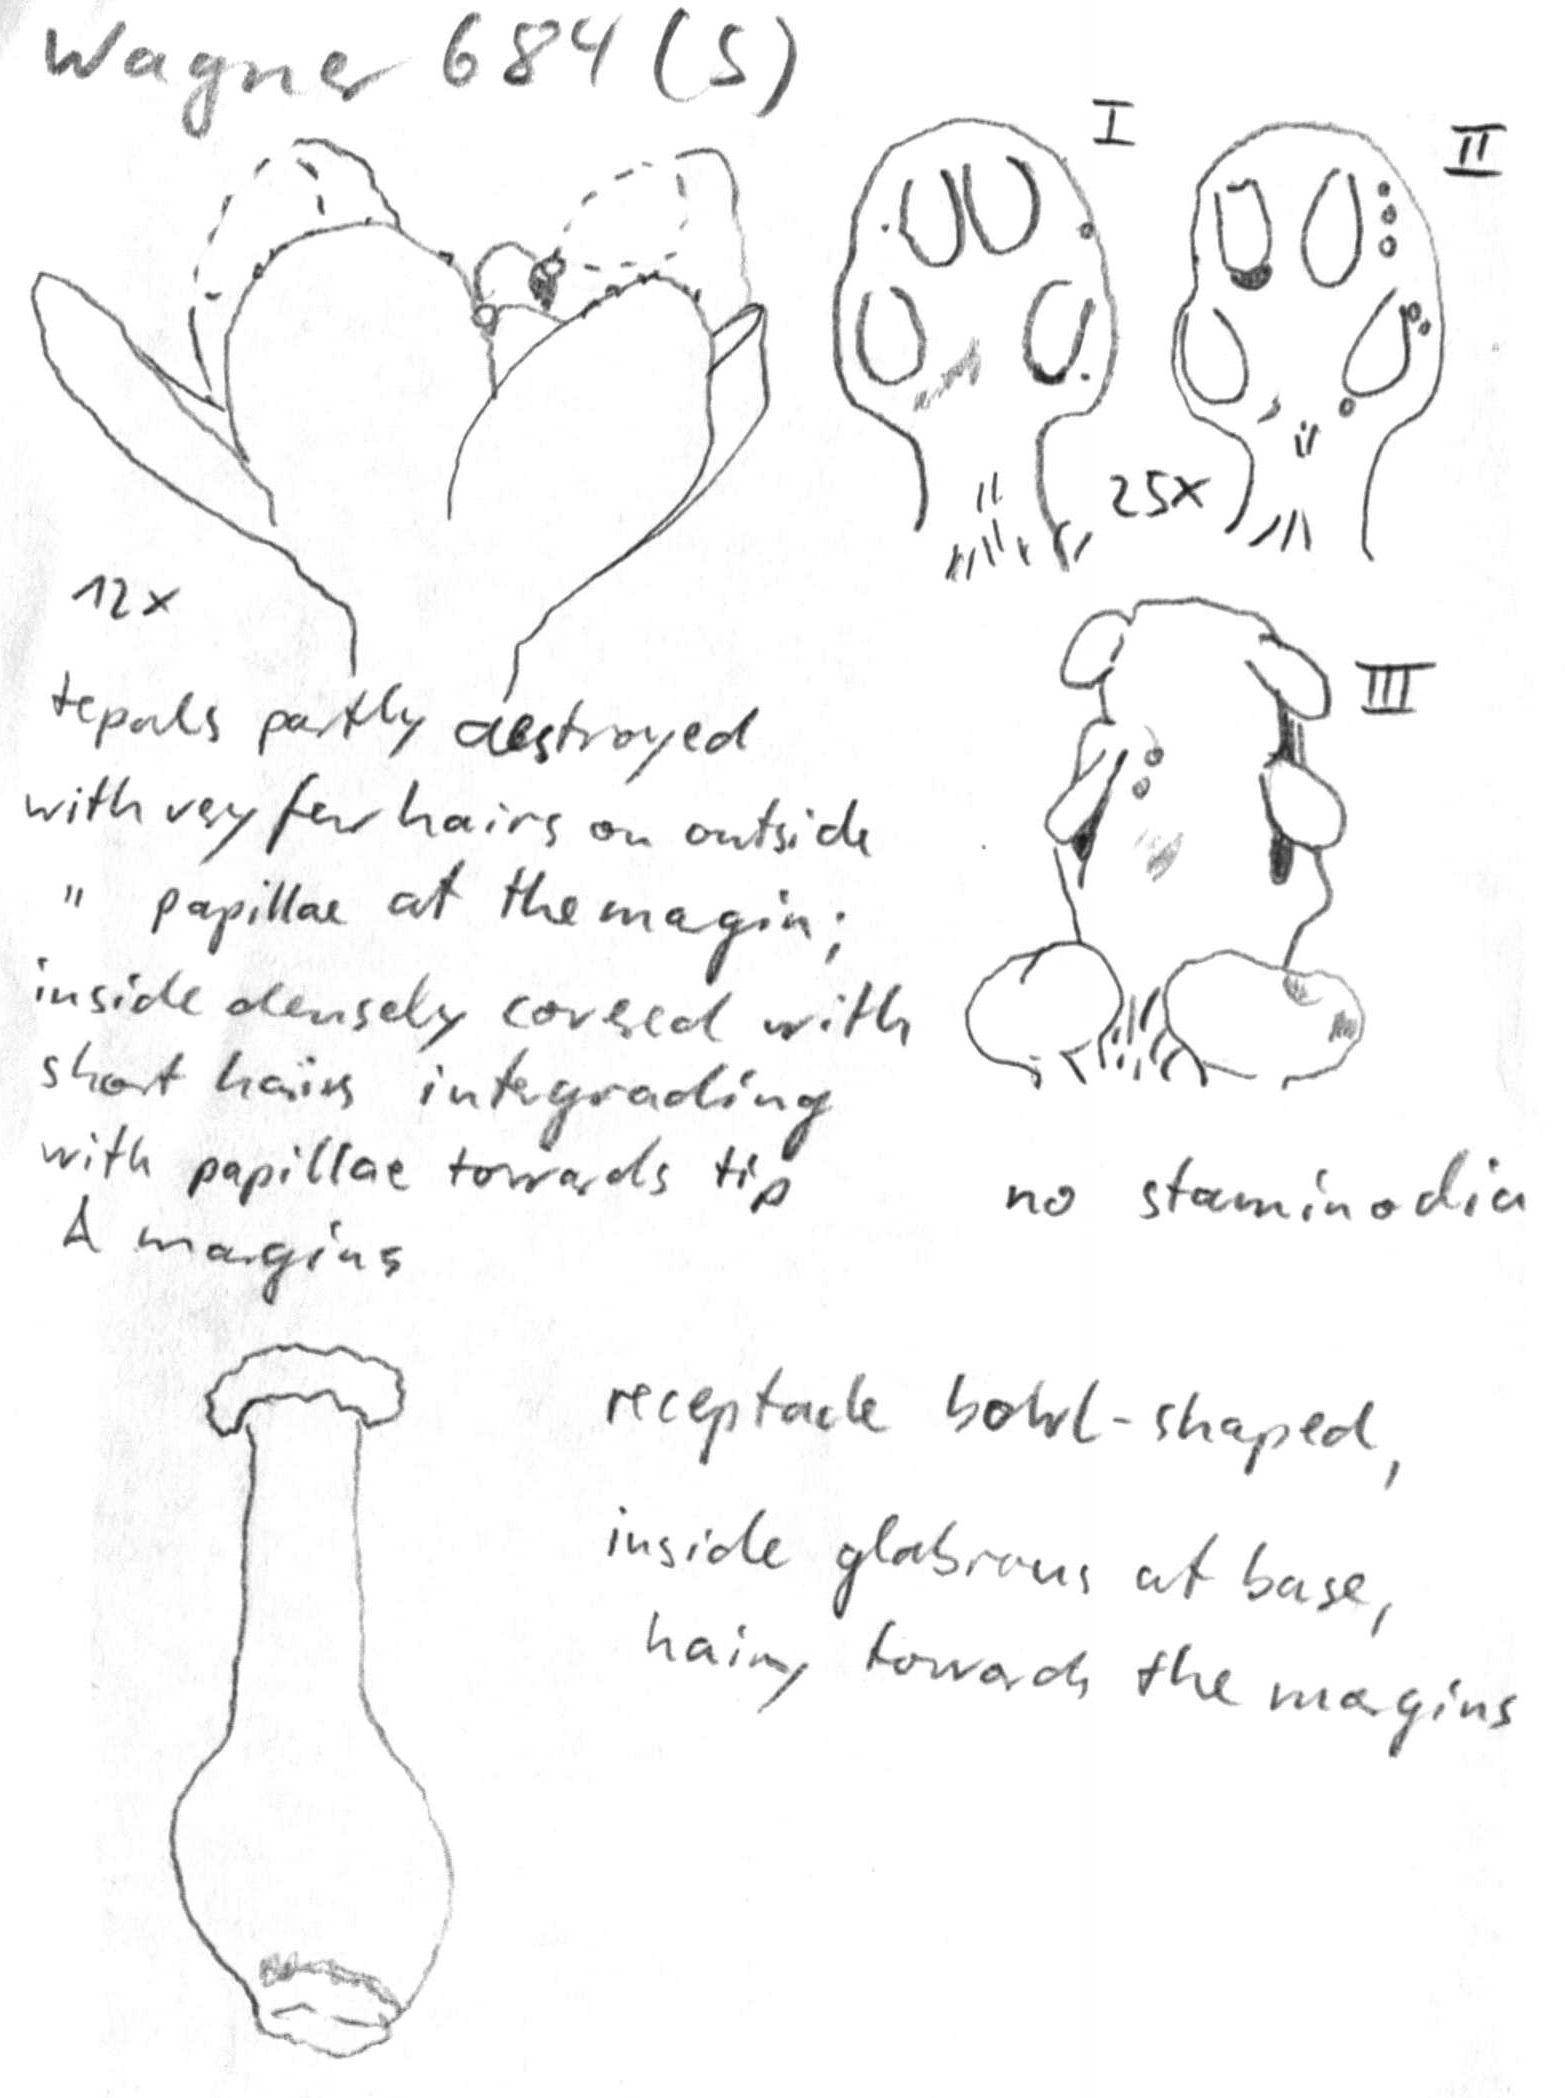 Wagner 684 (S)
I
II
25x
12x
III
tepals partly destroyed
with very few hairs on outside
" papillae at the magin;
inside densely covered with
short hairs intergrading
with papillae towards tip
& margins
no staminodia
receptacle bowl-shaped,
inside glabrous at base,
hairy towards the margins